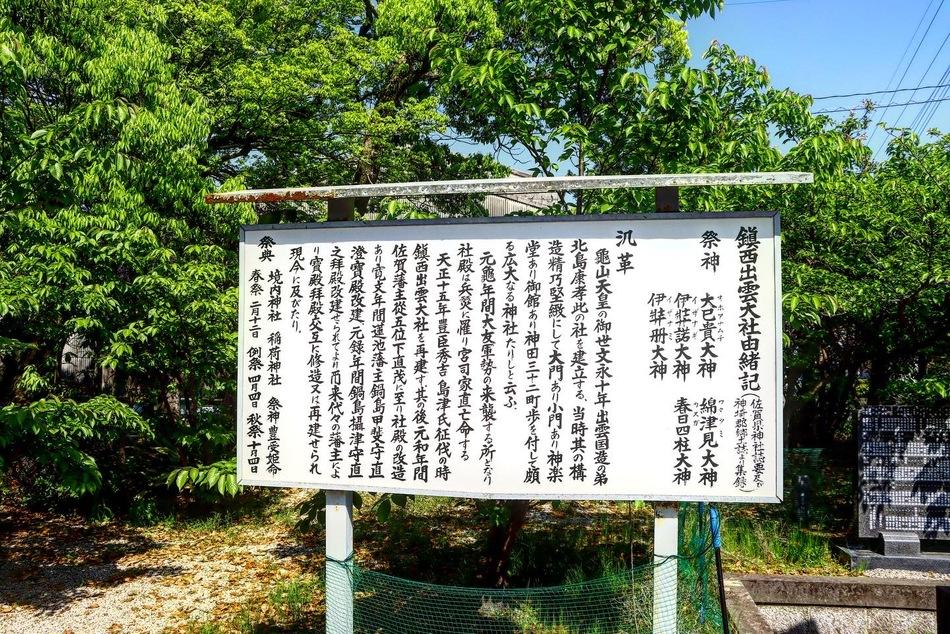 鎮西出雲大社由緒記
(佐賀県神社誌要及び
神埼郡郷土誌より集録)
祭神
オホアナムチ
大己貴大神
ワタツミ
綿津見大神
イザナギ
伊弉諾大神
カスガ
春日四柱大神
イザナミ
伊弉冊大神
沿革
亀山天皇の御世文永十年出雲国造の弟
北島康孝此の社を建立する、当時其の構
造精巧堅緻にして大門あり小門あり神楽
堂あり御館あり神田三十二町歩を付し頗
る広大なる神社たりしと云ふ、
元亀年間大友軍勢の来襲する所となり
社殿は兵災に罹り宮司家直亡命する
天正十五年豊臣秀吉島津氏征伐の時
鎮西出雲大社を再建す其の後元和年間
佐賀藩主従五位下直茂に至り社殿の改造
あり寛文年間蓮池藩主鍋島甲斐守直
澄寶殿改建、元録年間鍋島攝津守直
之拝殿改建せられてより而来代々の藩主よ
り寶殿拝殿父互に修造又は再建せられ
現今に及びたり。
祭典
境内神社 稲荷神社 祭神豊受姫命
春祭 二月十二日 例祭 四月四日 秋祭 十月四日